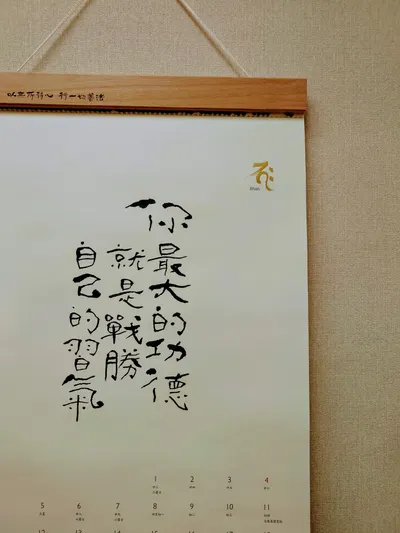 以無所得心 行一切善法
Dhan
你最大的功德
就是戰勝
自己的習氣
1 2 3 4
5 6 7 8 9 10 11